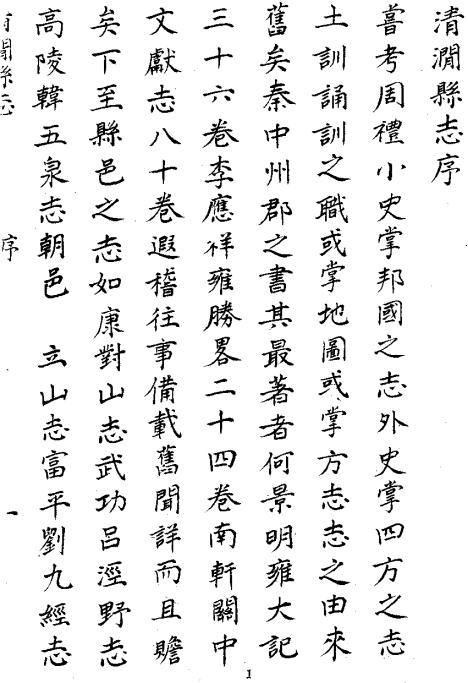 清澗縣志序
嘗考周禮小史掌邦國之志外史掌四方之志
土訓誦訓之職或掌地圖或掌方志志之由來
舊矣秦中州郡之書其最著者何景明雍大記
三十六卷李應祥雍勝畧二十四卷南軒關中
文獻志八十卷遐稽往事備載舊聞詳而且贍
矣下至縣邑之志如康對山志武功呂涇野志
高陵韓五泉志朝邑 立山志富平劉九經志
澗縣志 序 一
1